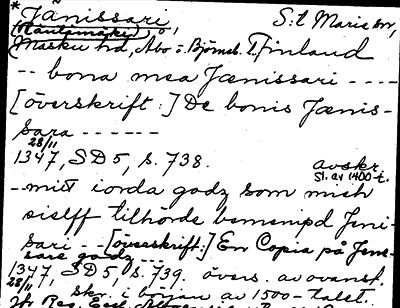 *Jänissari, S:t Marie sn,
(Räntämäki),
Masku hd, Åbo o. Björneb. l, Finland
-- bona mea Jænissari ----
[överskrift:] De bonis Jænis-
sara ------
28/11
1347, SD5, s. 738. avskr.
sl. av 1400-t.
-- mitt iorda godz som mich
sielff tilhörde benempd Jeni-
sari -- [överskrift:] En Copia på Jens-
sare godz --
1347, SD5, s. 739. övers. av ovenst.
28/11 skr. i början av 1500-talet.
Reg. Eccl.